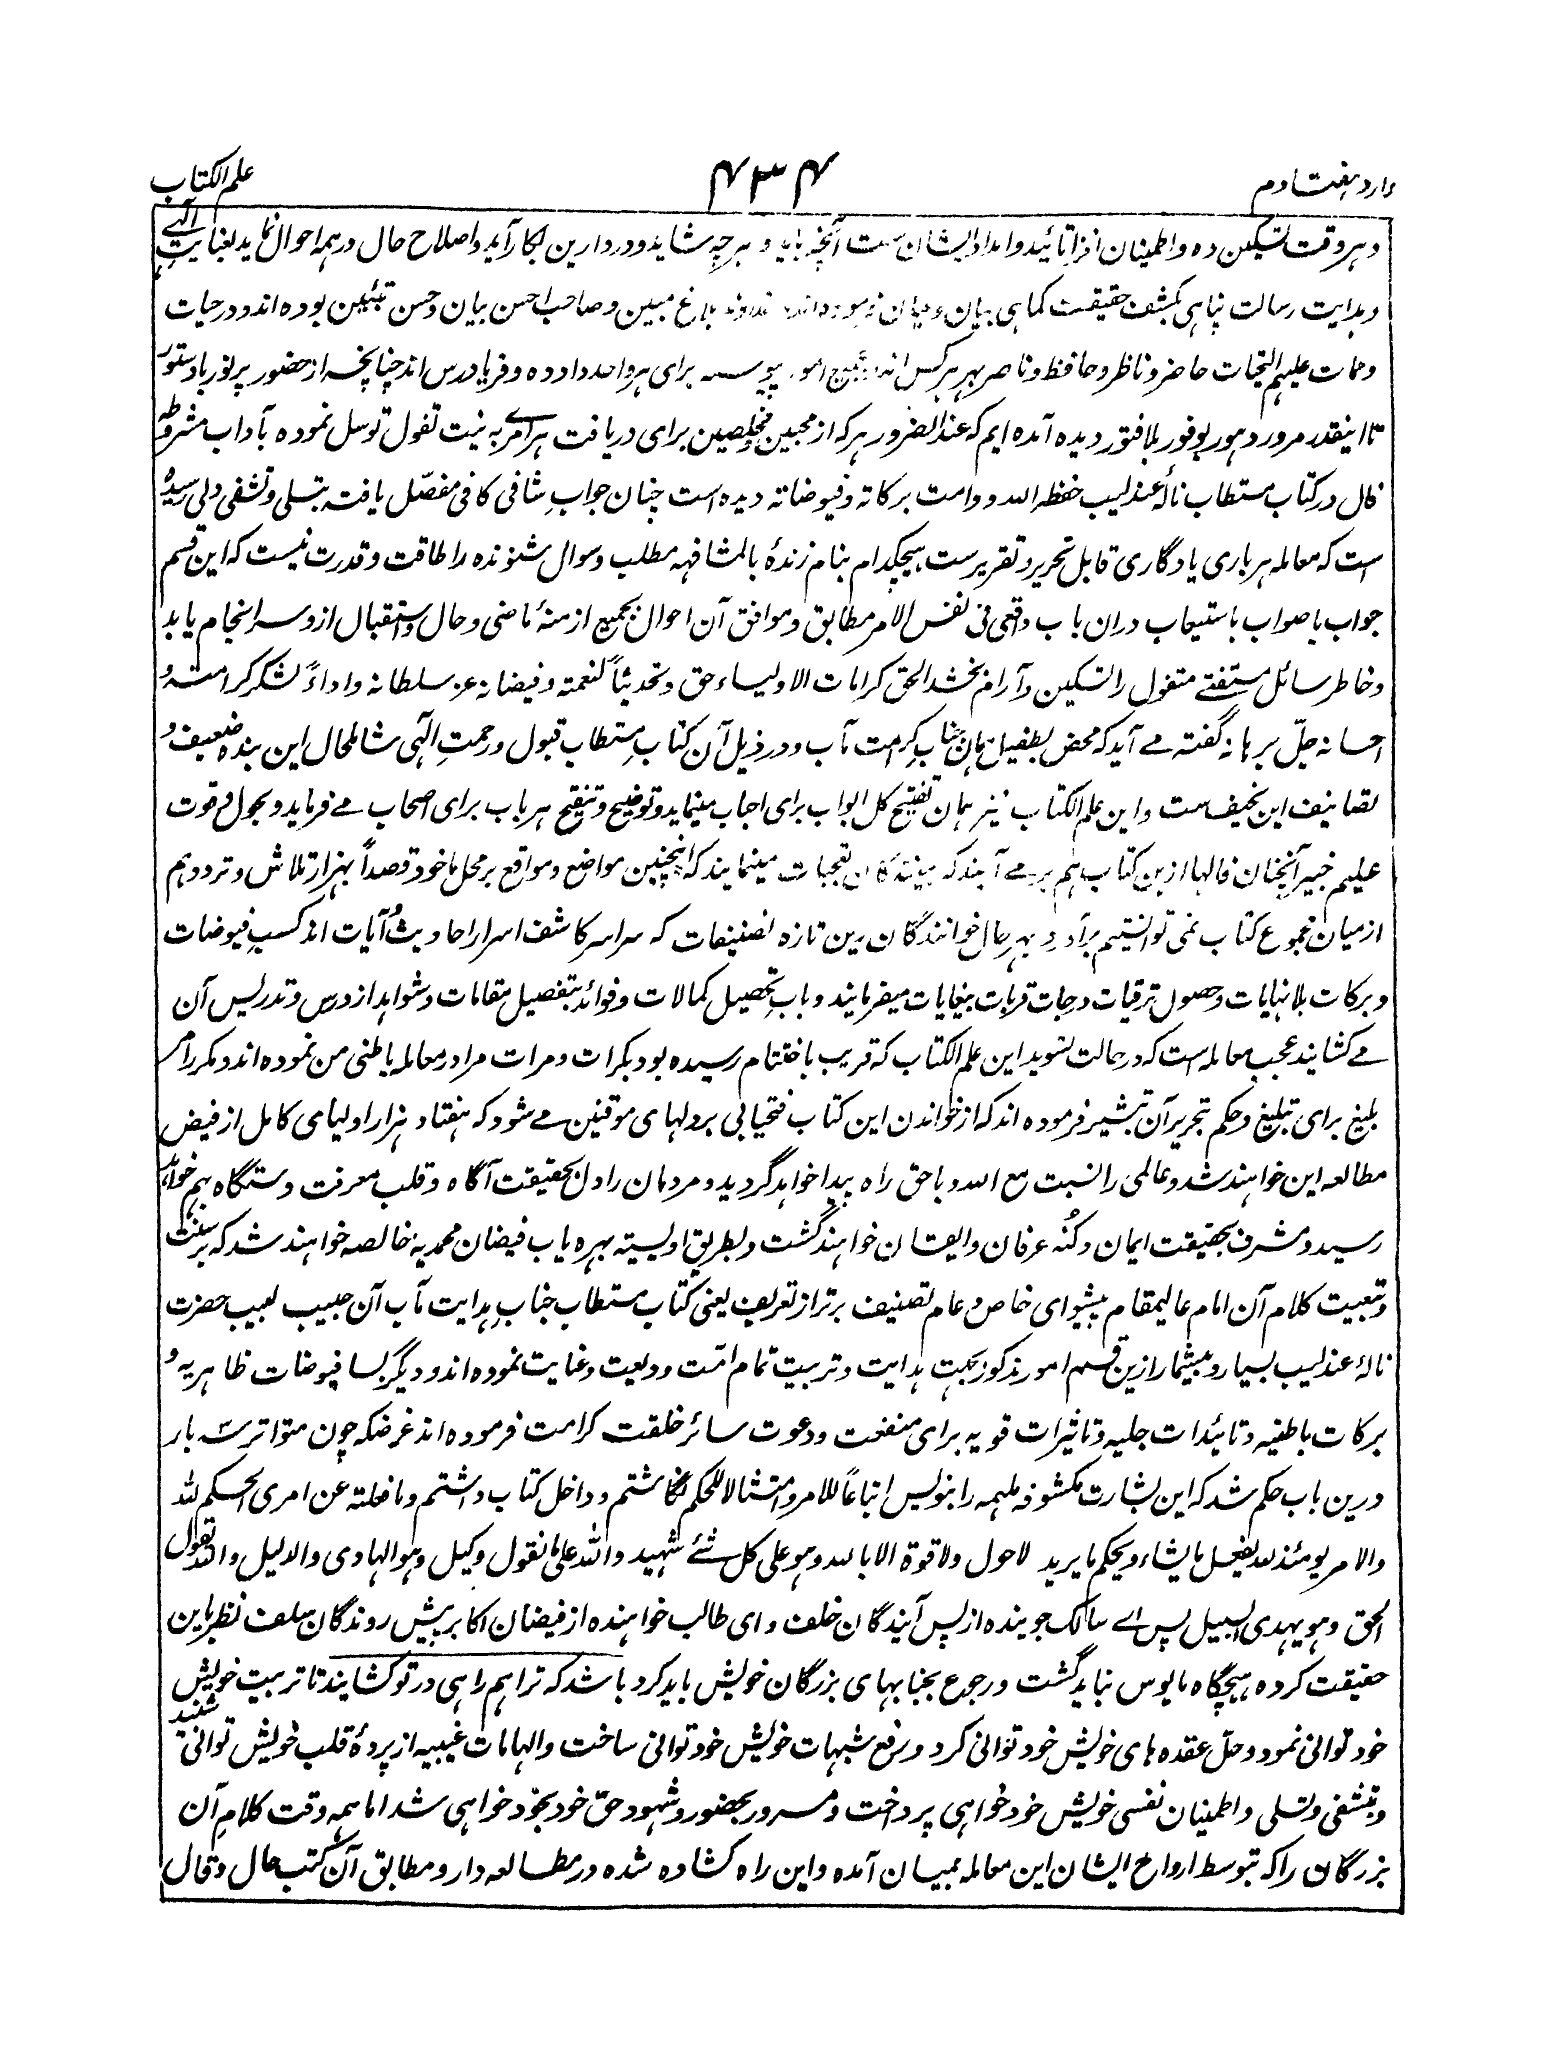 وارد هفتادم
۴۳۴
علم الکتاب
و هر وقت تسکین ده و اطمینان افزا تائید و امداد ایشان ست آنچه باید و هر چه شاید و در دارین بکار آید و اصلاح حال در همه احوال نماید بعنایت الٰهی
و هدایت رسالت پناهی بکشف حقیقت کماهی بیان و بلاغ مبین و صاحب احسن بیان و حسن تبئین بوده اند و در حیات
و ممات علیهم التحیات حاضر و ناظر و حافظ و ناصر بهر هر کس اند و پیوسته برای هر واحد داد ده و فریادرس اند چنانچه از حضور پر نور یا دستور
تا اینقدر مرور دهور بوفور بلا فتور دیده آمده ایم که عند الضرور هر که از محبین و مخلصین برای دریافت هر امری به نیت تفول توسل نموده بآداب مشروطه
فال در کتاب مستطاب نالهٔ عندلیب حفظه الله و دامت برکاته و فیوضاته دیده است چنان جواب شافی کافی مفصّل یافته بتسلی و تشفی دلی رسیده
است که معامله هر باری یادگاری قابل تحریر و تقریر ست هیچکدام بنام زندهٔ بالمشافهه مطلب و سوال شنونده را طاقت و قدرت نیست که این قسم
جواب با صواب باستیعاب دران باب واقعی فی نفس الامر مطابق و موافق آن احوال بجمیع ازمنهٔ ماضی و حال و استقبال از و سر انجام یابد
و خاطر سائل مستفتی متفول را تسکین و آرام بخشد الحق کرامات الاولیاء حق و تحدیثاً لنعمته و فیضانه عز سلطانه و اداءً لشکر کرامته و
احسانه جلّ برهانه گفته می آید که محض بطفیل همان جناب کرامت مآب و در ذیل آن کتاب مستطاب قبول و رحمت الٰهی شامل حال این بنده ضعیف و
تصانیف این نحیف ست و این علم الکتاب نیز همان تفتیح کل ابواب برای احباب مینماید و توضیح و تنقیح هر باب برای اصحاب می فرماید و بحول و قوت
علیم خبیر آنچنان فالها ازین کتاب هم بر می آیند که بینندگان تعجبات مینمایند که اینچنین مواضع و مواقع بر محل ما خود قصداً بهزار تلاش و تردد هم
از میان مجموع کتاب نمی توانستیم برآورد بهر حال خوانندگان این تازه تصنیفات که سراسر کاشف اسرار احادیث و آیات اند کسب فیوضات
و برکات بلا نهایات و حصول ترقیات درجات قربات بیغایات میفرمایند و باب تحصیل کمالات و فوائد بتفصیل مقامات و شواهد از درس و تدریس آن
می کشایند عجب معامله است که در حالت تسوید این علم الکتاب که قریب باختتام رسیده بود بکرات و مرات مرا در معامله باطنی من نموده اند و مکرر امر
بلیغ برای تبلیغ و حکم تحریر آن تبشیر فرموده اند که از خواندن این کتاب فتحیابی بر دلهای موقنین می شود که هفتاد هزار اولیای کامل از فیض
مطالعه این خواهند شد و عالمی را نسبت مع الله و با حق راه پیدا خواهد گردید و مردمان را دل بحقیقت آگاه و قلب معرفت دستگاه بهم خواهد
رسید و مشرف بحقیقت ایمان و کُنه عرفان و ایقان خواهند گشت و بطریق اویسیه بهره یاب فیضان محمدیه خالصه خواهند شد که بر سنت
و تبعیت کلام آن امام عالیمقام پیشوای خاص و عام تصنیف برتر از تعریف یعنی کتاب مستطاب جناب هدایت مآب آن حبیب لبیب حضرت
نالهٔ عندلیب بسیار و بیشمار ازین قسم امور مذکور بجهت هدایت و تربیت تمام امّت ودیعت و عنایت نموده اند و دیگر بسا فیوضات ظاهریه و
برکات باطنیه و تائیدات جلیه و تاثیرات قویه برای منفعت و دعوت سائر خلقت کرامت فرموده اند غرضکه چون متواتر سه بار
درین باب حکم شد که این بشارت مکشوفه ملهمه را بنویس اتباعاً للامر و امتثالا للحکم نگاشتم و داخل کتاب داشتم و ما فعلته عن امری الحکم لله
والامر یومئذ لله یفعل ما یشاء و یحکم ما یرید لا حول ولا قوة الا بالله و هو علی کل شئ شهید والله علی ما نقول وکیل و هو الهادی والدلیل والله یقول
الحق و هو یهدی السبیل پس ای سالک جوینده از پس آیندگان خلف و ای طالب خواهنده از فیضان اکابر پیش روندگان سلف نظر باین
حقیقت کرده هیچگاه مایوس نباید گشت و رجوع بجنابهای بزرگان خویش باید کرد باشد که ترا هم راهی در تو کشایند تا تربیت خویش
خود توانی نمود و حل عقده های خویش خود توانی کرد و رفع شبهات خویش خود توانی ساخت و الهامات غیبیه از پردهٔ قلب خویش توانی شنید
و بتشفی و تسلی و اطمینان نفسی خویش خود خواهی پرداخت و مسرور بحضور و شهود حق خود بخود خواهی شد اما همه وقت کلام آن
بزرگان را که بتوسط ارواح ایشان این معامله بمیان آمده و این راه کشاده شده در مطالعه دار و مطابق آن کتب حال و قال